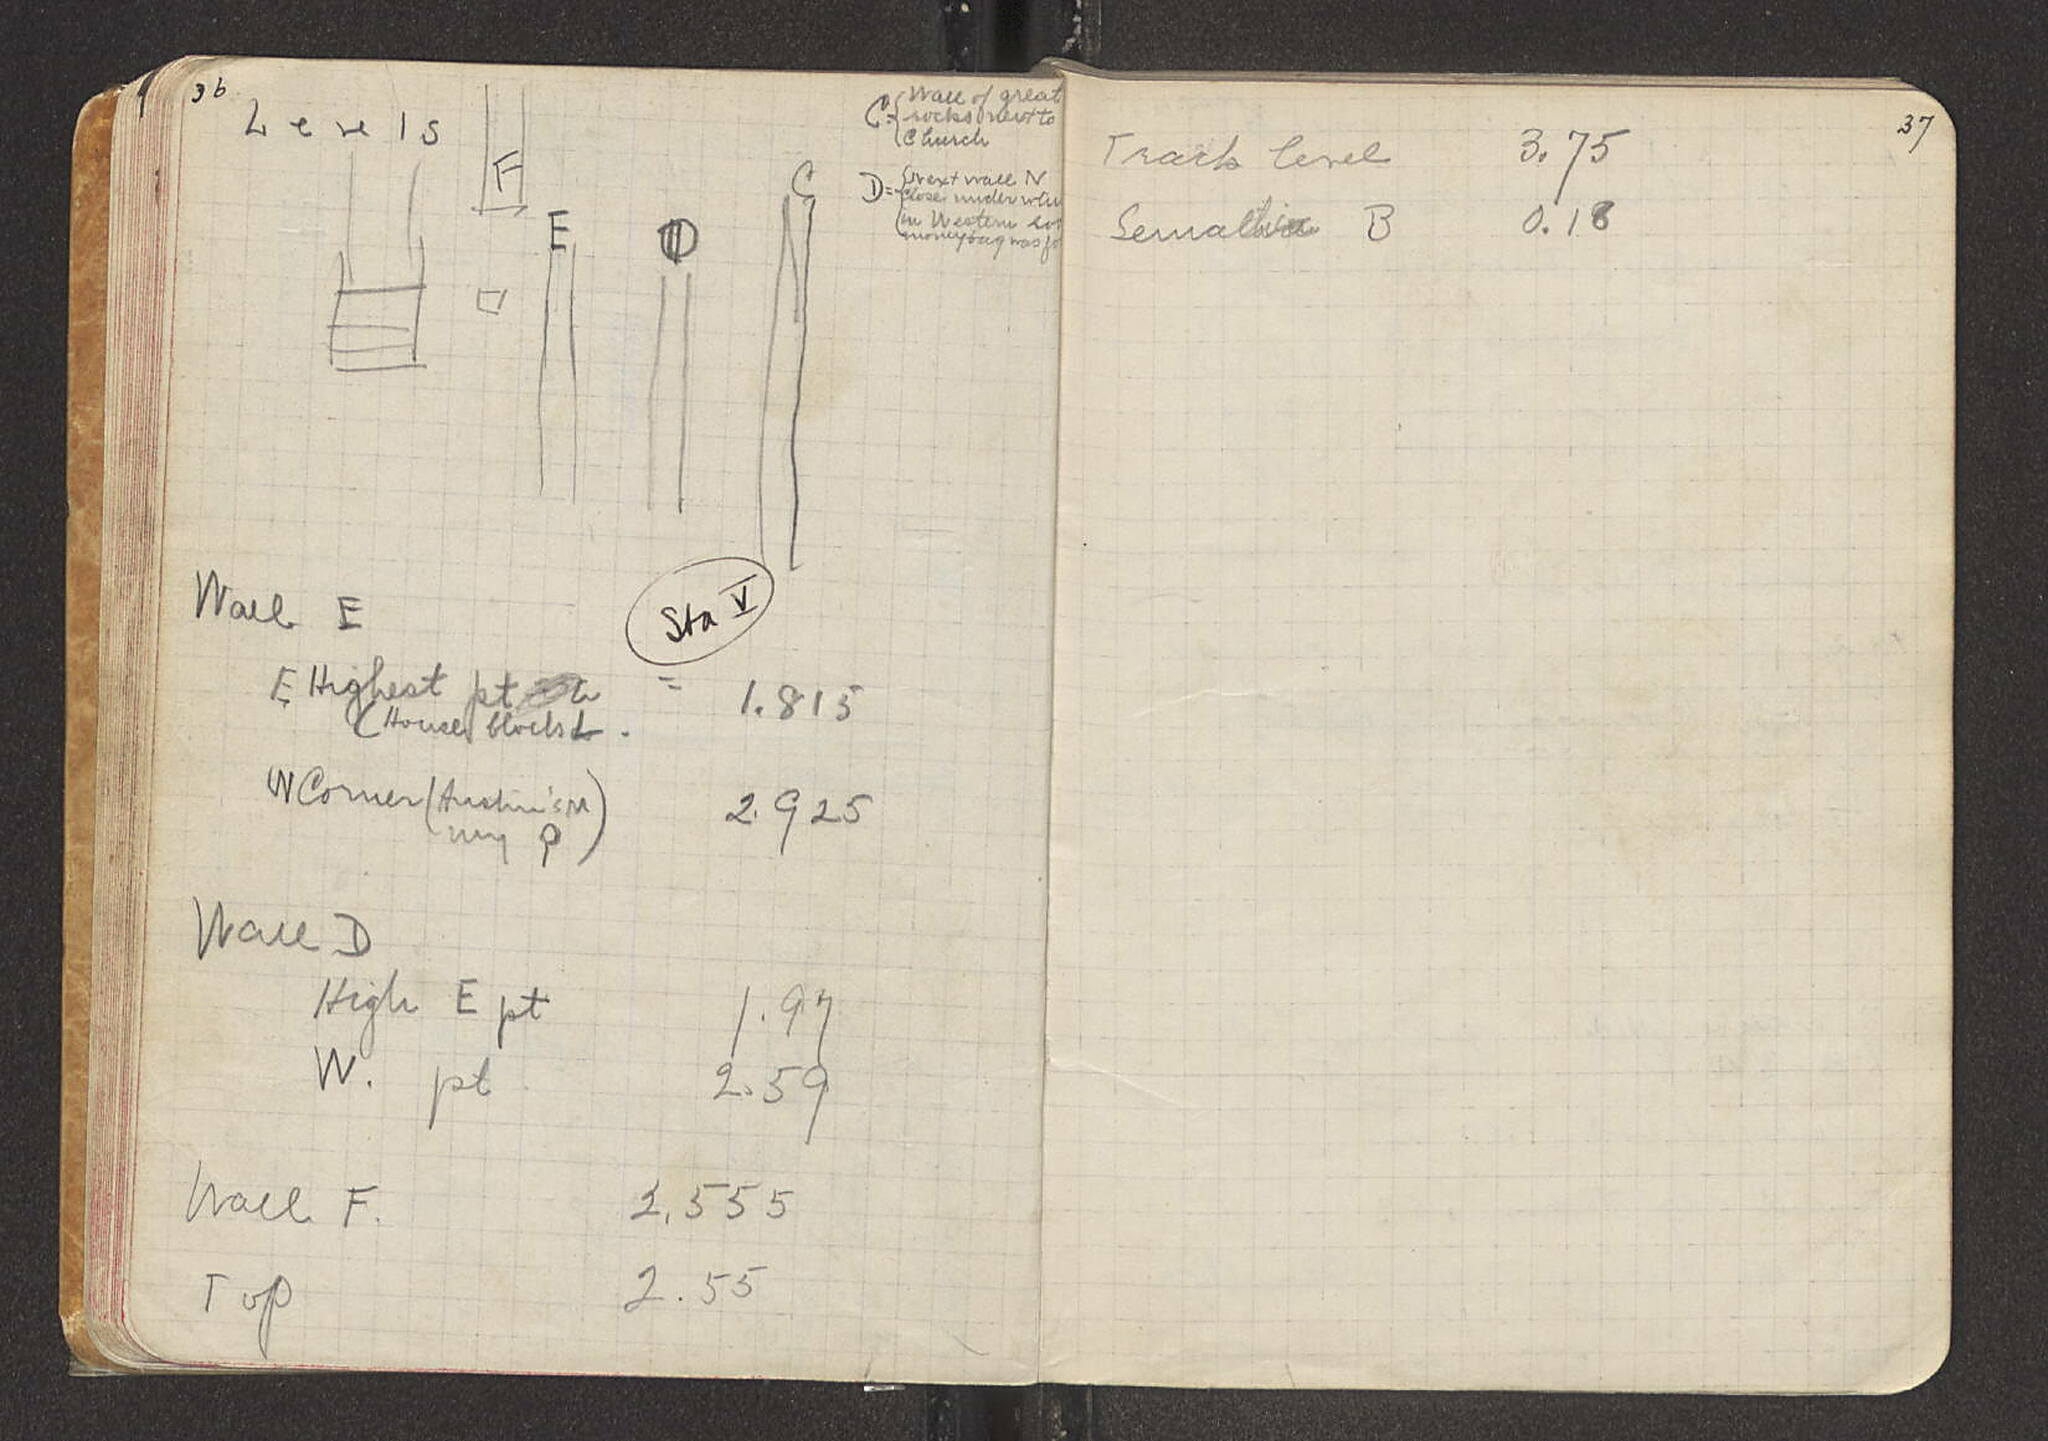 36
Levels
F
E
D
C
C = Wall of great
rocks next to
Church
D = Next wall N
close under
in Western
moneybag was
Wall E
Sta V
E Highest pt = 1.815
(House blocks
W Corner (Austin's M 2.925
my P)
Wall D
High E pt 1.97
W. pt 2.59
Wall F. 2.555
Top 2.55
37
Track level 3.75
B 0.18